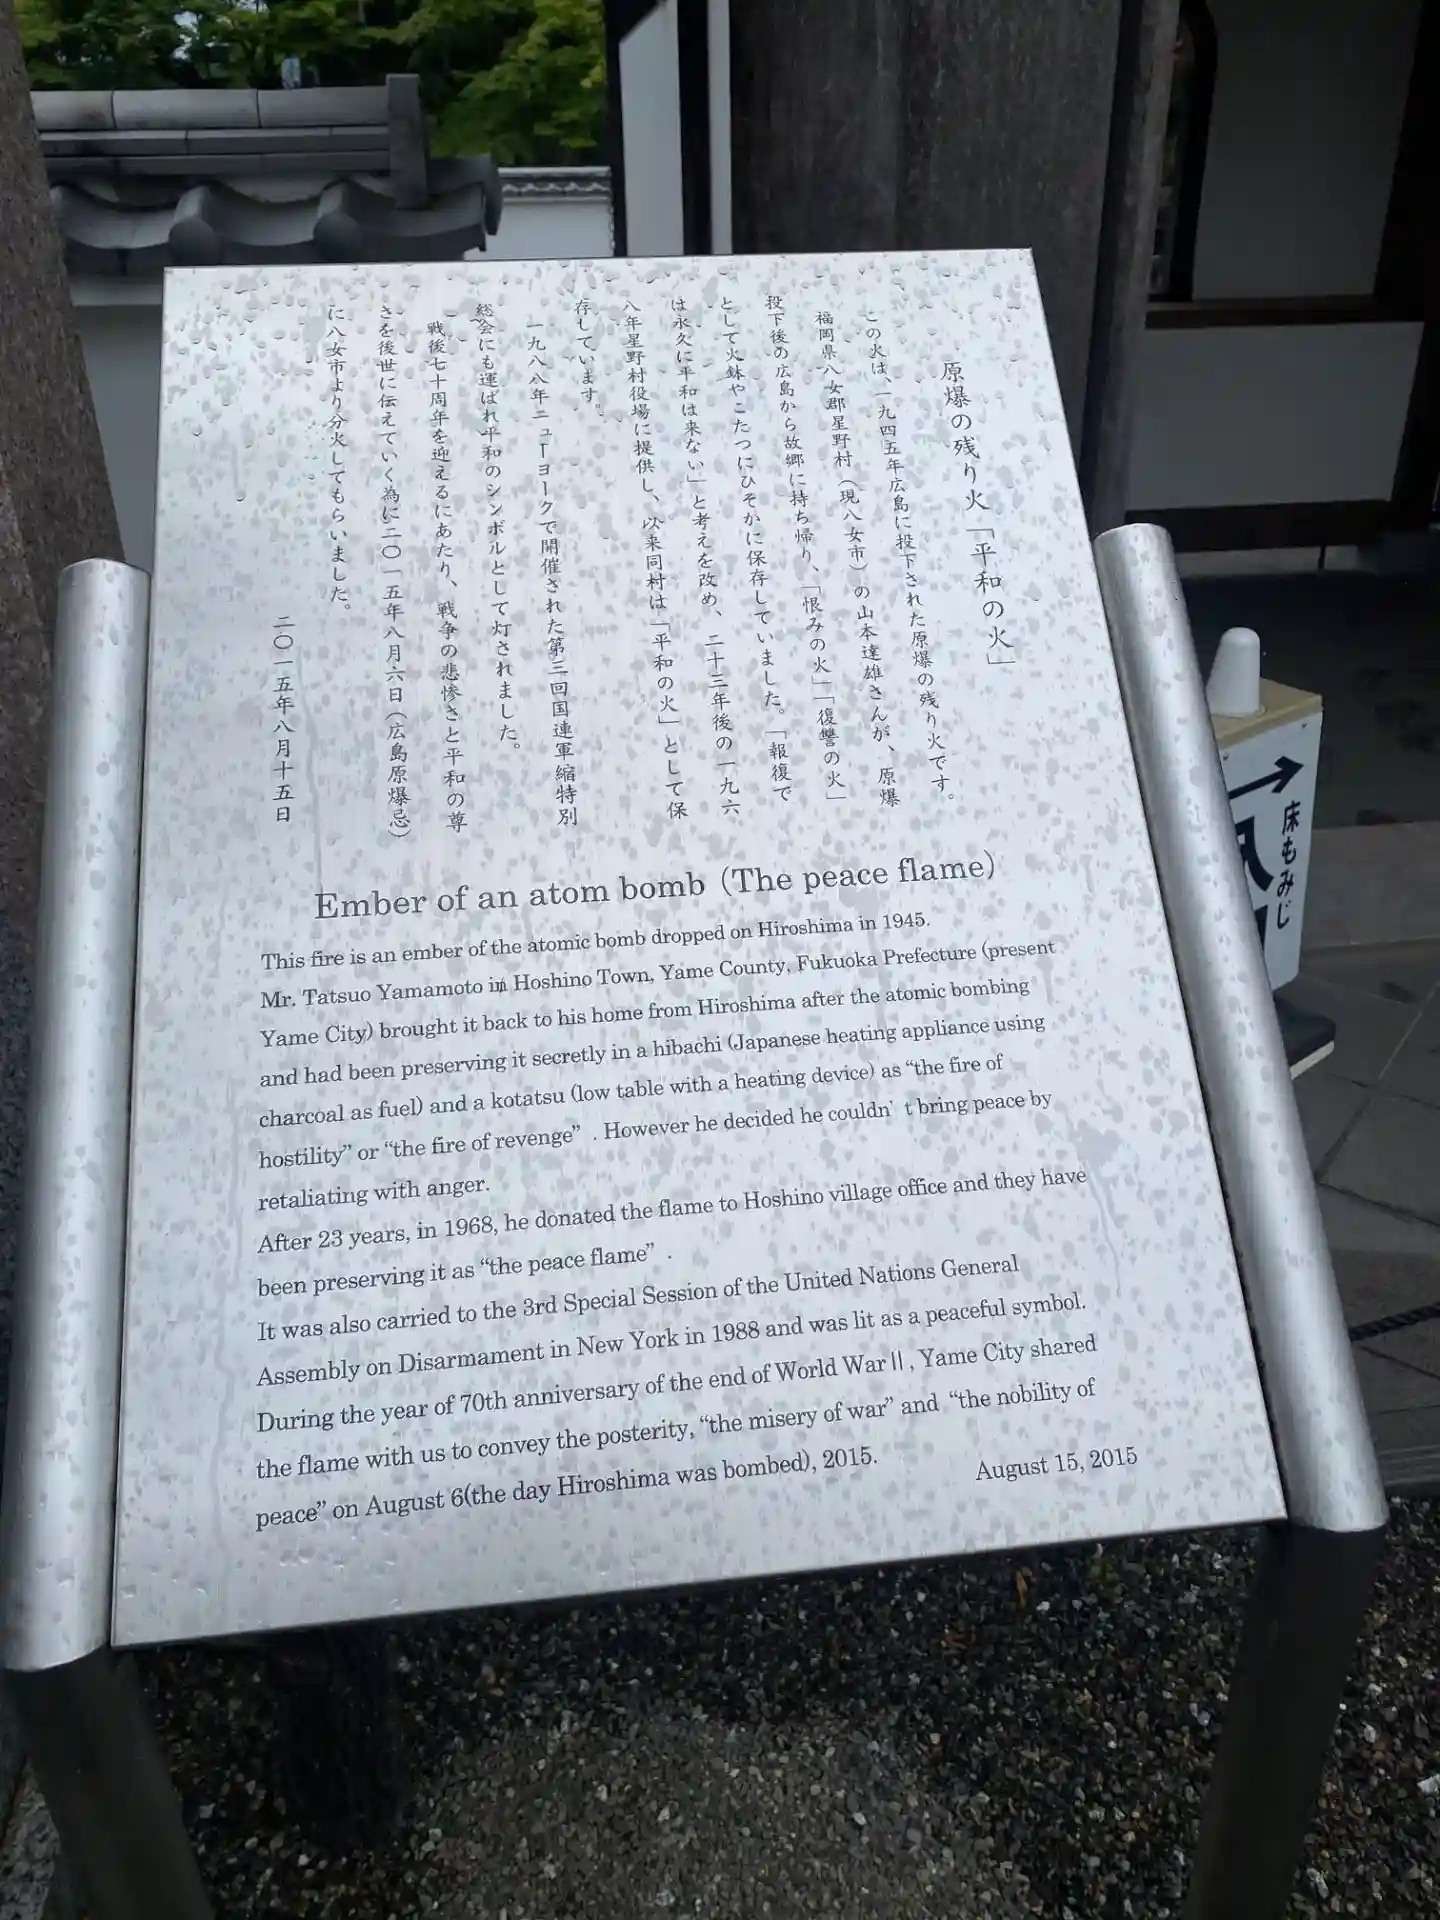 原爆の残り火「平和の火」
この火は、一九四五年広島に投下された原爆の残り火です。
福岡県八女郡星野村（現八女市）の山本達雄さんが、原爆
投下後の広島から故郷に持ち帰り、「恨みの火」「復讐の火」
として火鉢やこたつにひそかに保存していました。「報復で
は永久に平和は来ない」と考えを改め、二十三年後の一九六
八年星野村役場に提供し、以来同村は「平和の火」として保
存しています。
一九八八年ニューヨークで開催された第三回国連軍縮特別
総会にも運ばれ平和のシンボルとして灯されました。
戦後七十周年を迎えるにあたり、戦争の悲惨さと平和の尊
さを後世に伝えていく為に二〇一五年八月六日（広島原爆忌）
に八女市より分火してもらいました。
二〇一五年八月十五日
Ember of an atom bomb (The peace flame)
This fire is an ember of the atomic bomb dropped on Hiroshima in 1945.
Mr. Tatsuo Yamamoto in Hoshino Town, Yame County, Fukuoka Prefecture (present
Yame City) brought it back to his home from Hiroshima after the atomic bombing
and had been preserving it secretly in a hibachi (Japanese heating appliance using
charcoal as fuel) and a kotatsu (low table with a heating device) as “the fire of
hostility” or “the fire of revenge” . However he decided he couldn’ t bring peace by
retaliating with anger.
After 23 years, in 1968, he donated the flame to Hoshino village office and they have
been preserving it as “the peace flame” .
It was also carried to the 3rd Special Session of the United Nations General
Assembly on Disarmament in New York in 1988 and was lit as a peaceful symbol.
During the year of 70th anniversary of the end of World War II , Yame City shared
the flame with us to convey the posterity, “the misery of war” and “the nobility of
peace” on August 6(the day Hiroshima was bombed), 2015.
August 15, 2015
→
床もみじ